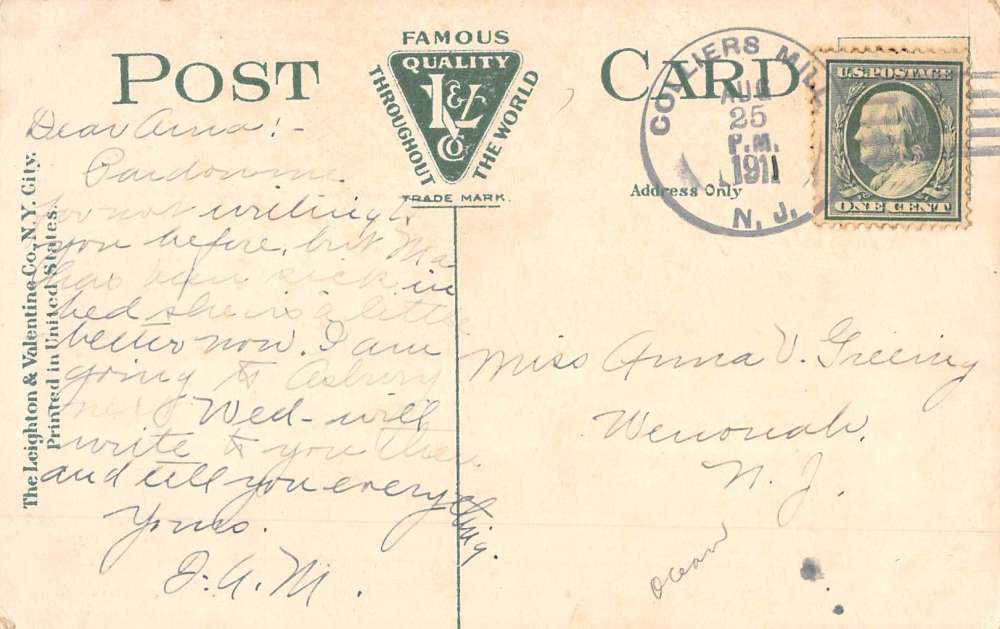 FAMOUS
QUALITY
THROUGHOUT
THE WORLD
L & V
CO
TRADE MARK.
POST CARD
Address Only
COLLIERS MILLS
AUG
25
P.M.
1911
N. J.
U.S. POSTAGE
ONE CENT
The Leighton & Valentine Co., N.Y. City.
Printed in United States.
Dear Anna! -
Pardon me
for not writing to
you before, but Ma
has been sick in
bed she is a little
better now. I am
going to Asbury
next Wed- will
write to you then
and tell you everything.
Yours.
D. A. M.
Miss Anna V. Greeing
Wenonah,
N. J.
ocean